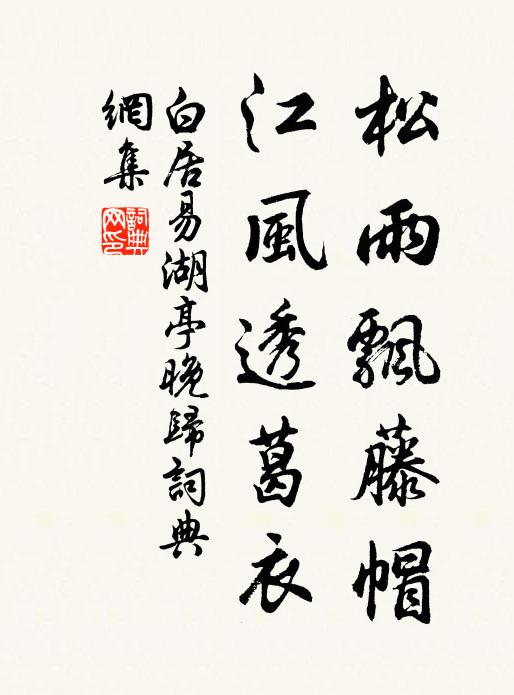 松雨飄藤帽
江風透葛衣
白居易湖亭晚歸詞典
網集
詞典网印